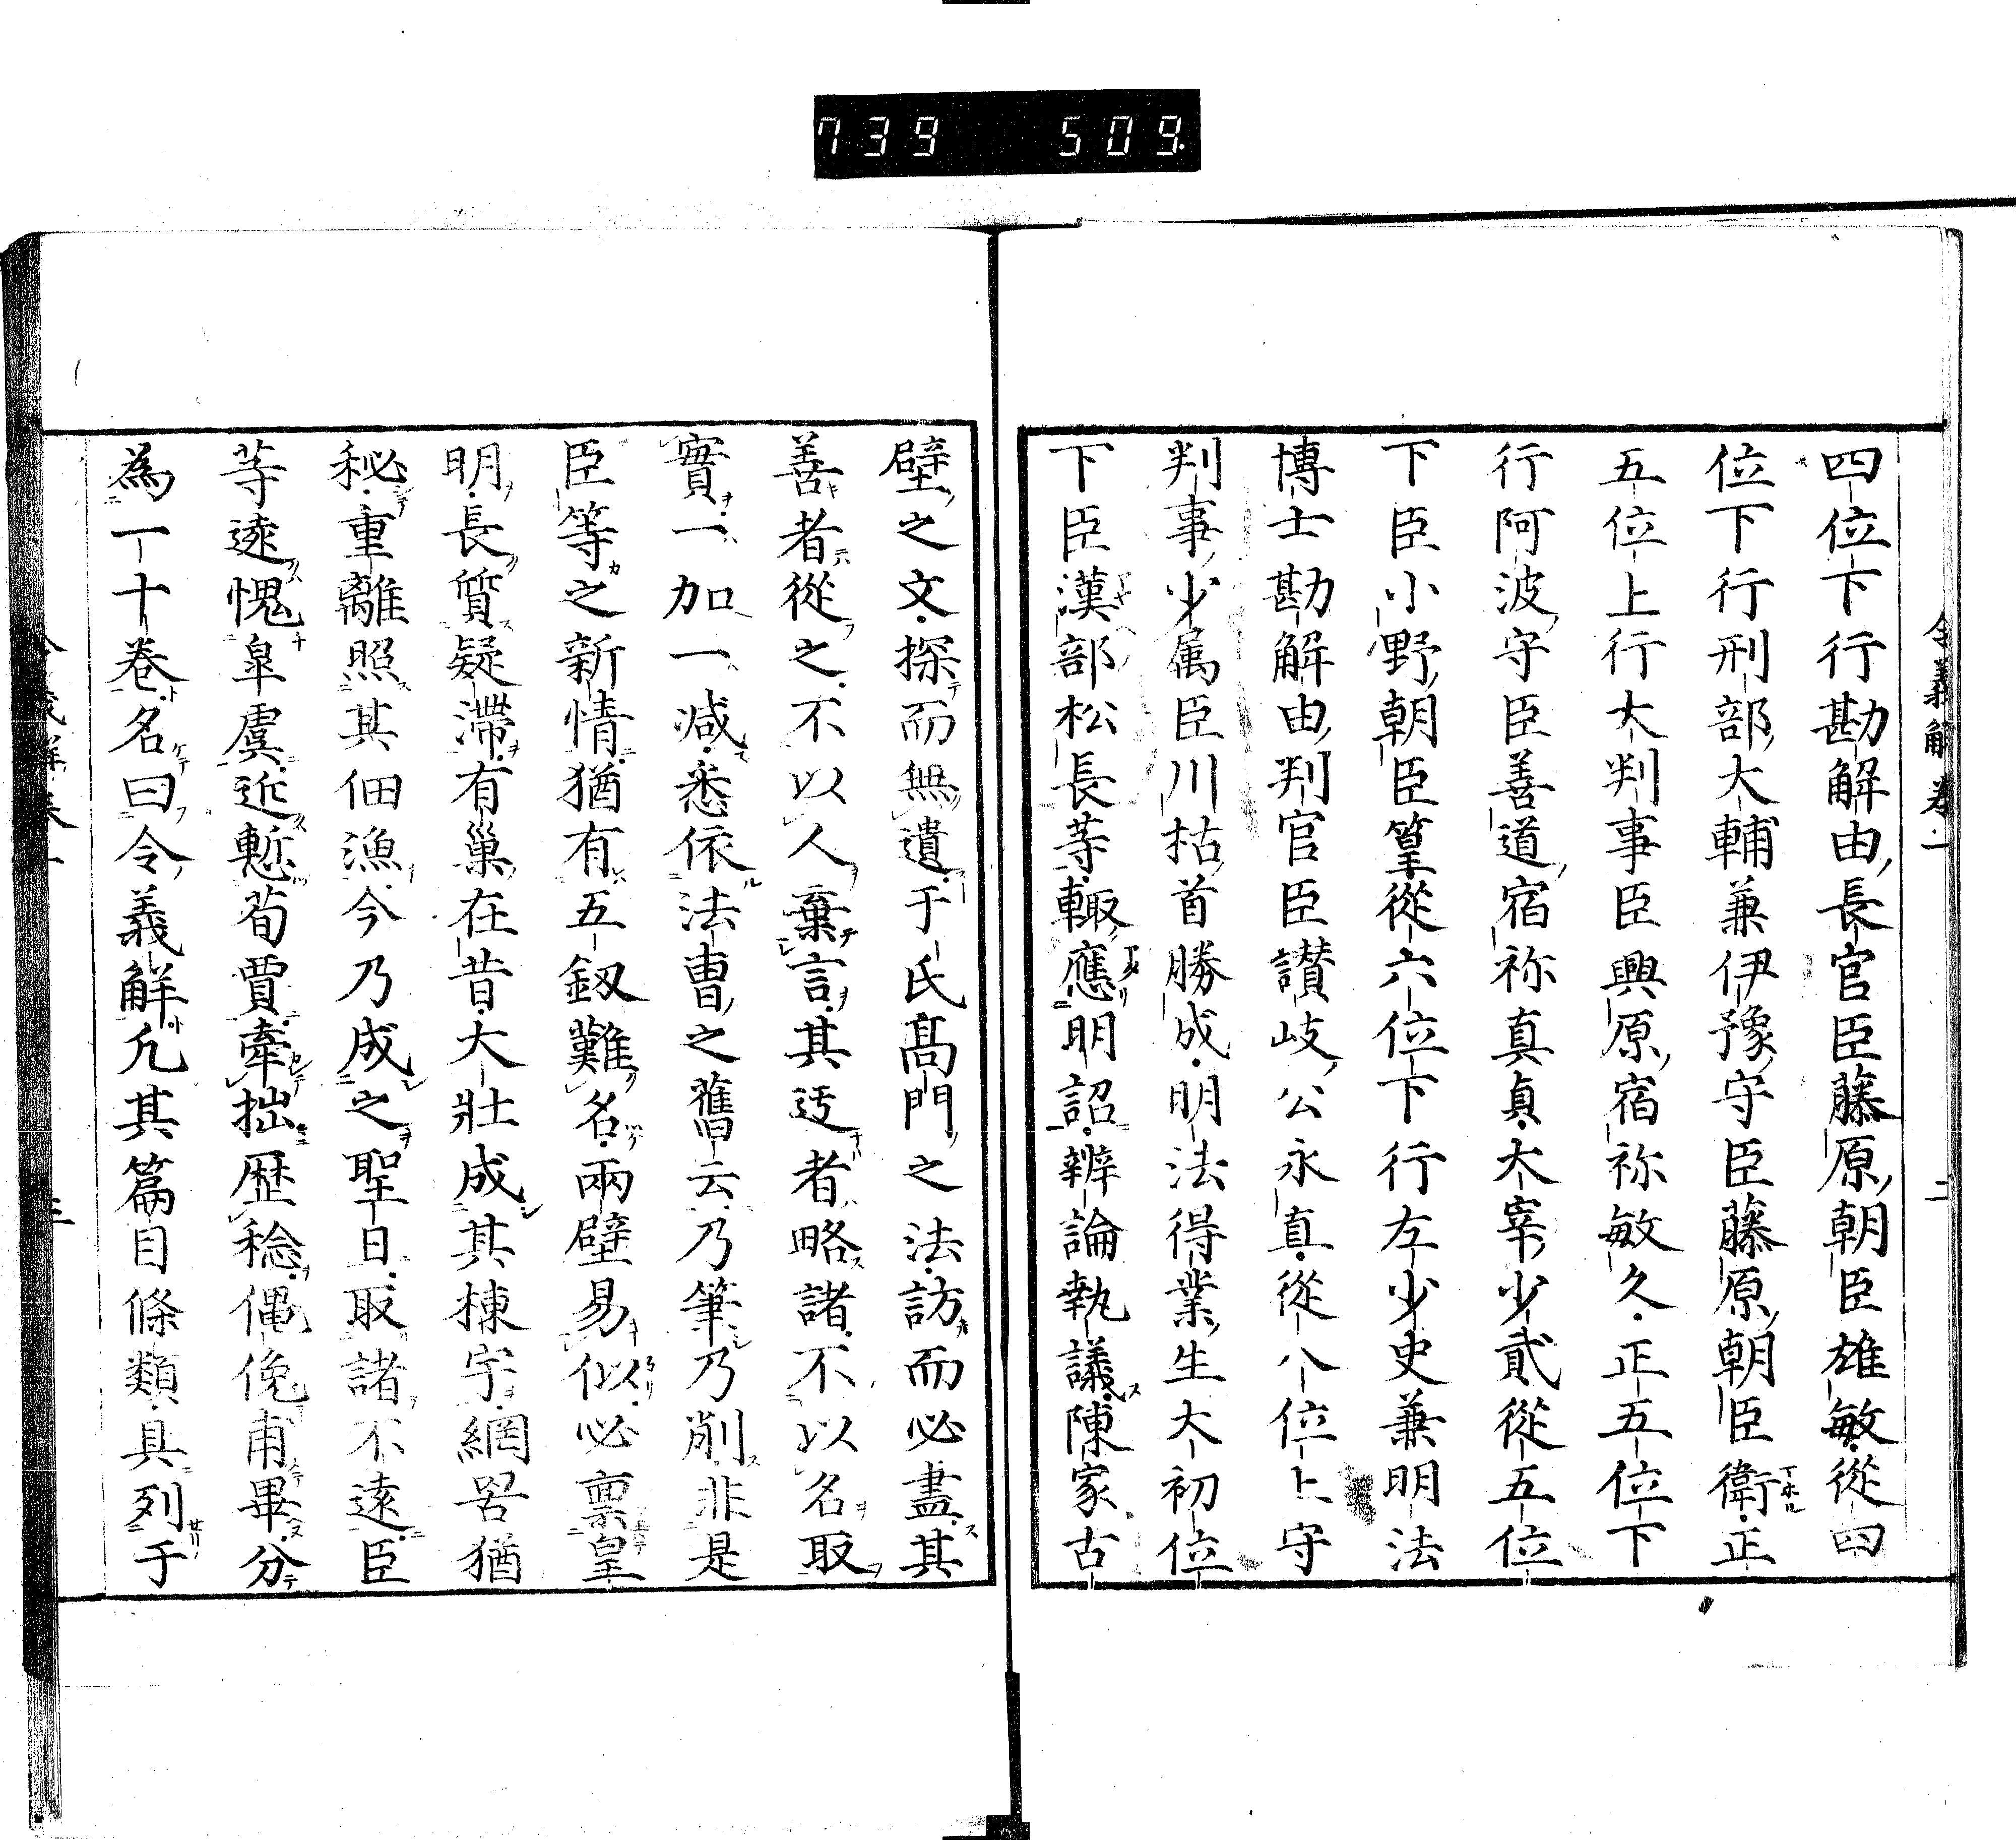 739 509
令義解卷一 二
四位下行勘解由長官臣藤原朝臣雄敏從四
位下行刑部大輔兼伊豫守臣藤原朝臣衛正
五位上行大判事臣興原宿祢敏久正五位下
行阿波守臣善道宿祢真貞大宰少貳從五位
下臣小野朝臣篁從六位下行左少史兼明法
博士勘解由判官臣讃岐公永真從八位上守
判事少属臣川枯首勝成明法得業生大初位
下臣漢部松長等輙應明詔辨論執議陳家古
壁之文探而無遺于氏髙門之法訪而必盡其
善者從之不以人棄言其迃者略諸不以名取
實一加一减悉依法曹之舊云乃筆乃削非是
臣等之新情猶有五釼難名兩壁易似必禀皇
明長質疑滯有巢在昔大壯成其棟宇網罟猶
秘重離照其佃漁今乃成之聖日取諸不遠臣
等遠愧皐虞近慙荀賈牽拙歴稔僶俛甫畢分
為一十卷名曰令義解凢其篇目條類具列于
令義解卷一 三